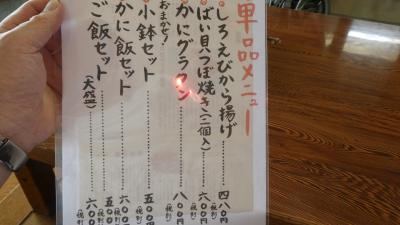 単品メニュー
しろえびから揚げ………四八〇円(税別)
ばい貝つぼ焼き(二個入)…六〇〇円(税別)
かにグラタン………八〇〇円(税別)
おまかせ!
小鉢セット………五〇〇円(税別)
かに飯セット………六〇〇円(税別)
ご飯セット………五〇
(大盛)………六〇〇